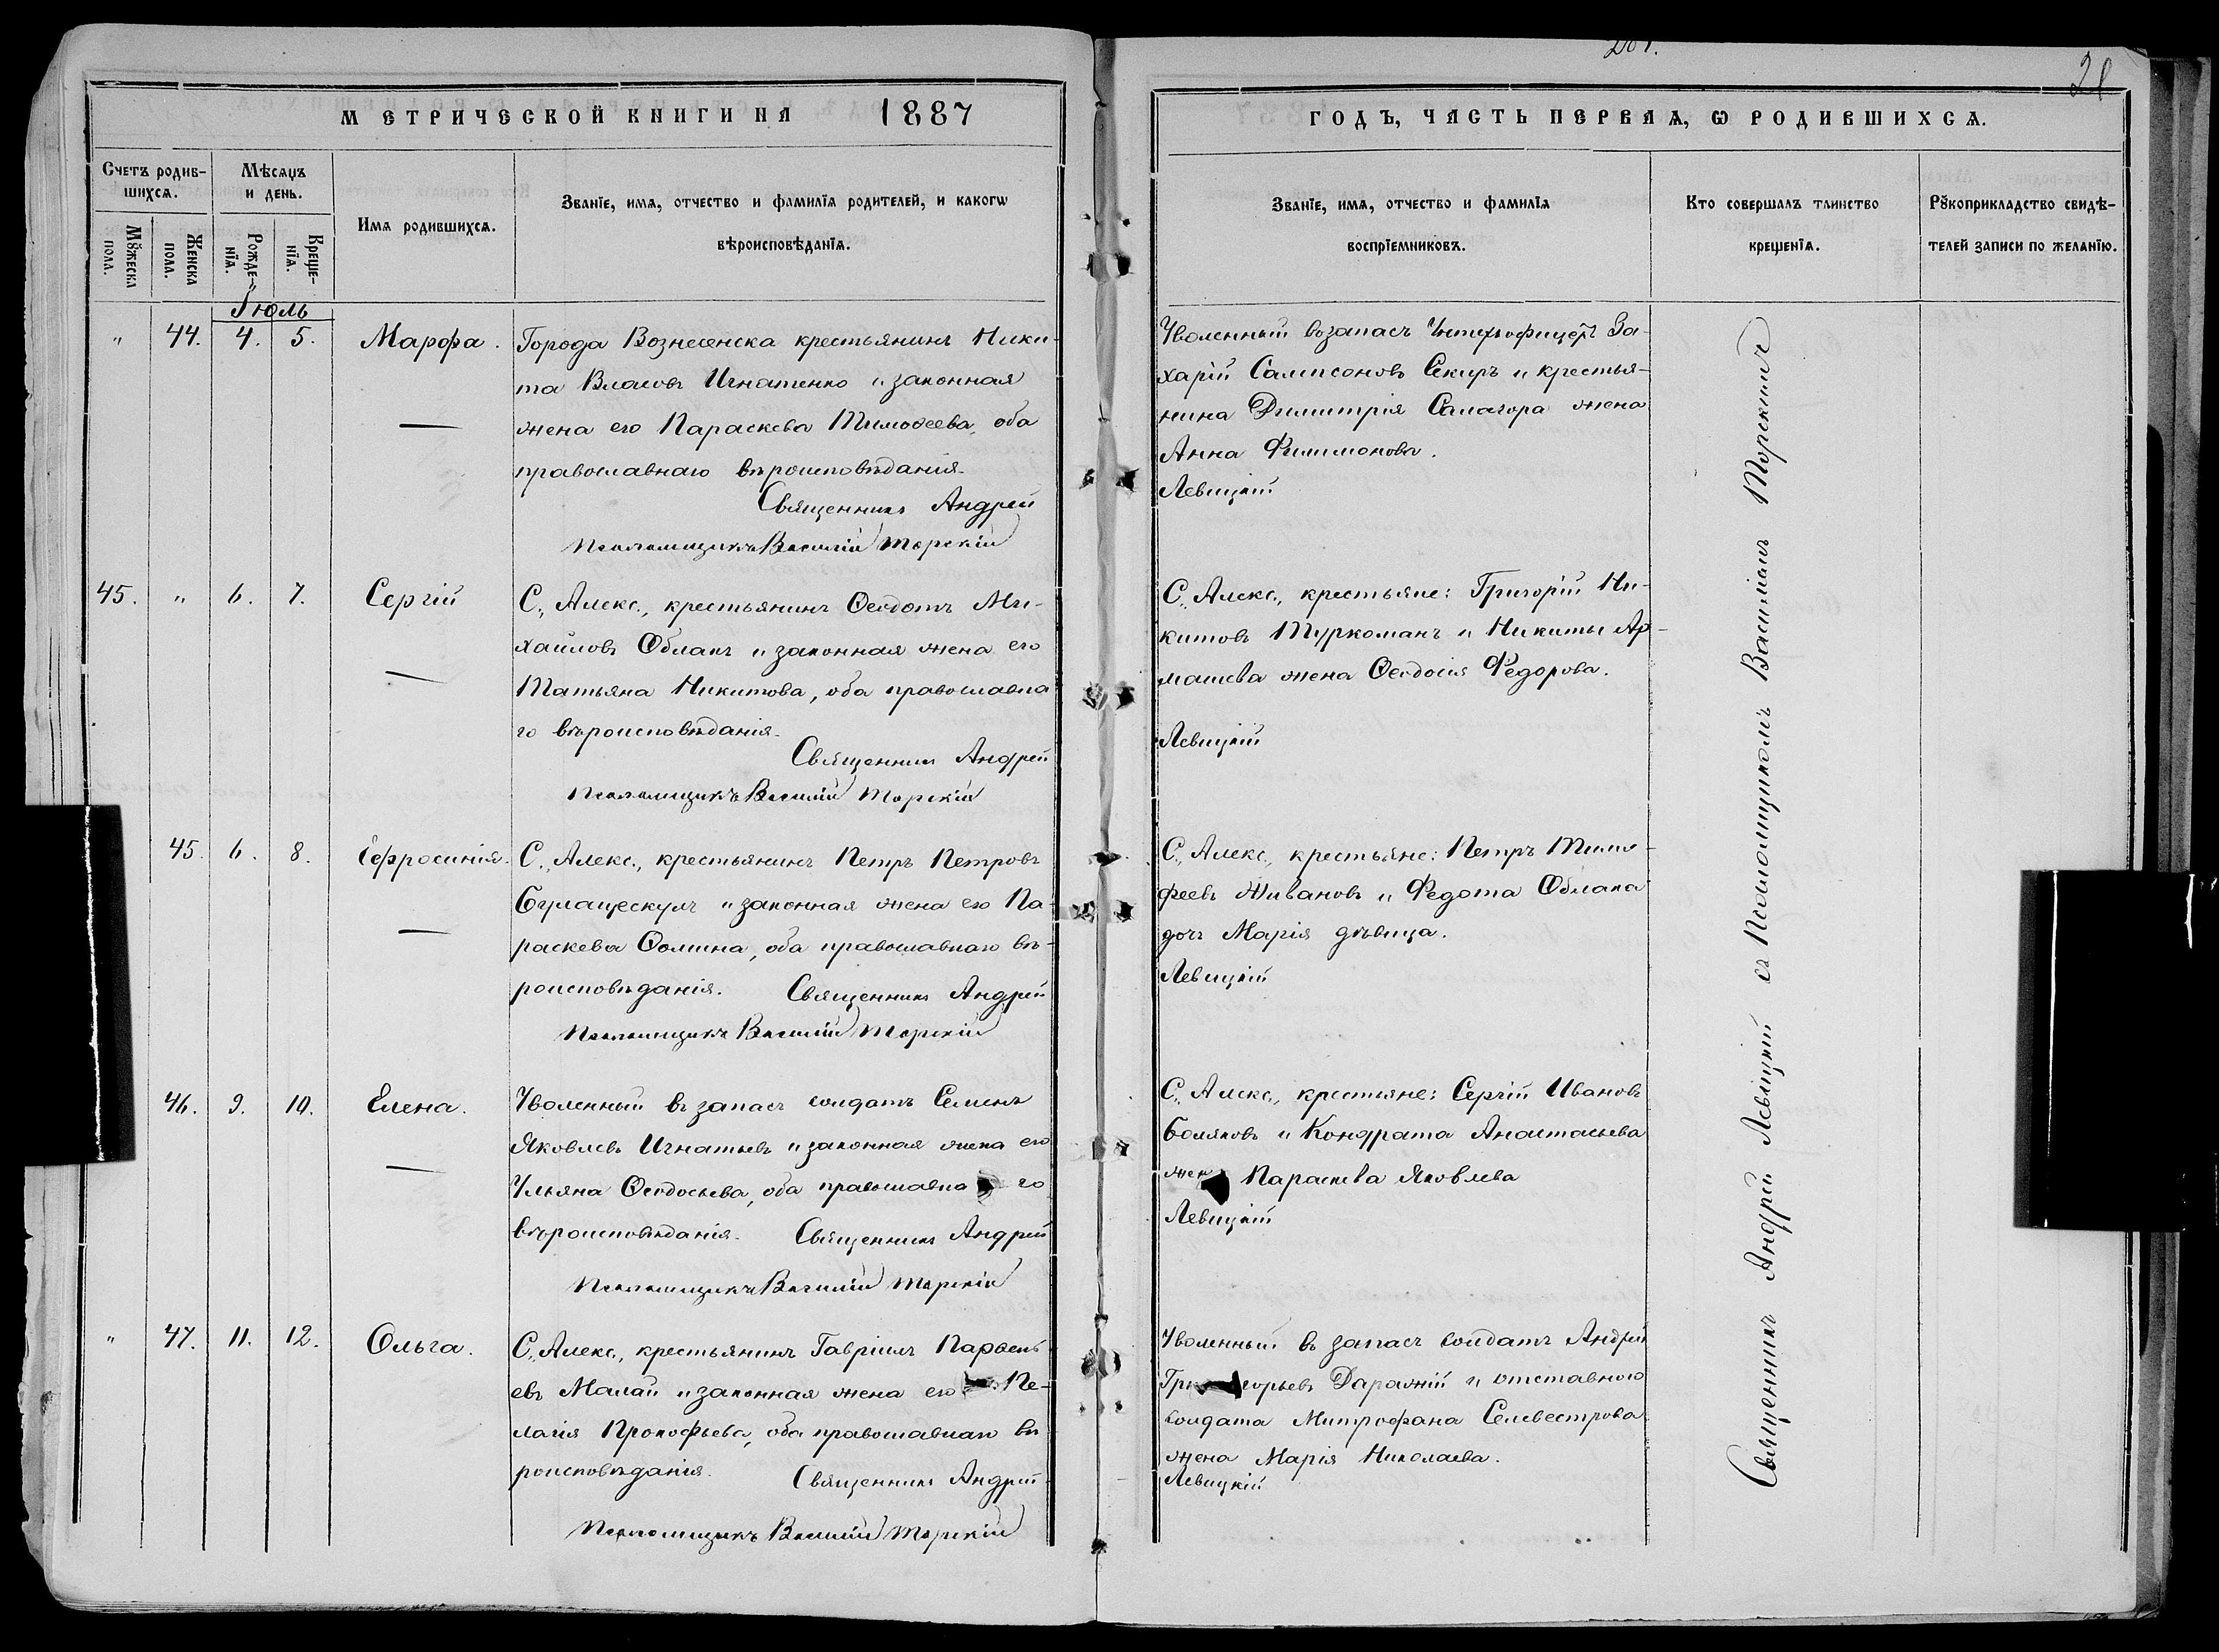 201.
21
МЕТРИЧЕСКОЙ КНИГИ НА 1887
ГОДЪ, ЧАСТЬ ПЕРВАѦ, Ѡ РОДИВШИХСѦ.
Счетъ родив-
шихсѧ.
Мѣсѧцъ
и день.
Имѧ родившихсѧ.
Званїе, имѧ, отчество и фамилїѧ родителей, и какогѡ
вѣроисповѣданїѧ.
Мꙋжеска
пола.
Женска
пола.
Рожде-
нїѧ.
Креще-
нїѧ.
Званїе, имѧ, отчество и фамилїѧ
воспрїемниковъ.
Кто совершалъ таинство
крещенїѧ.
Рꙋкоприкладство свидѣ-
телей записи по желанїю.
Іюль
" 44. 4. 5. Марфа.
Города Вознесенска крестьянинъ Ники-
та Власовъ Игнатенко и законная
жена его Параскева Тимоѳеева, оба
православнаго вѣроисповѣданія.
Священникъ Андрей
Псаломщикъ Василій Торскій
Уволенный въ запасъ Унтерофицеръ За-
харій Сампсоновъ Секиръ и крестья-
нина Димитрія Самагора жена
Анна Филимонова.
Левицкій
45. " 6. 7. Сергій
С., Алекс., крестьянинъ Ѳеодотъ Ми-
хайловъ Облакъ и законная жена его
Татьяна Никитова, оба православна
го вѣроисповѣданія.
Священникъ Андрей
Псаломщикъ Василій Торскій
С., Алекс., крестьяне: Григорій Ни-
китовъ Туркоманъ и Никиты Ар-
машева жена Ѳеодосія Федорова.
Левицкій
45. 6. 8. Ефросинія.
С., Алекс., крестьянинъ Петръ Петровъ
Булащескулъ и законная жена его Па-
раскева Ѳомина, оба православнаго вѣ-
роисповѣданія. Священникъ Андрей
Псаломщикъ Василій Торскій
С., Алекс., крестьяне: Петръ Тимо-
феевъ Живановъ и Федота Облака
дочь Марія дѣвица.
Левицкій
46. 9. 10. Елена.
Уволенный въ запасъ солдатъ Семенъ
Яковлевъ Игнатьевъ и законная жена его
Ульяна Ѳеодосьева, оба православна го
вѣроисповѣданія. Священникъ Андрей
Псаломщикъ Василій Торскій
С., Алекс., крестьяне: Сергій Ивановъ
Боляковъ и Кондрата Анастасьева
жен Параскева Яковлева
Левицкій
" 47. 11. 12. Ольга.
С., Алекс., крестьянинъ Гавріилъ Парѳень
евъ Малай и законная жена его Пе-
лагія Прокофьева, оба православнаго вѣ
роисповѣданія. Священникъ Андрей
Псаломщикъ Василій Торскій
Уволенный въ запасъ солдатъ Андрей
Григорьевъ Даражій и отставного
солдата Митрофана Селевестрова
жена Марія Николаева.
Левицкій
Священникъ Андрей Левицкій съ Псаломщикомъ Торскимъ